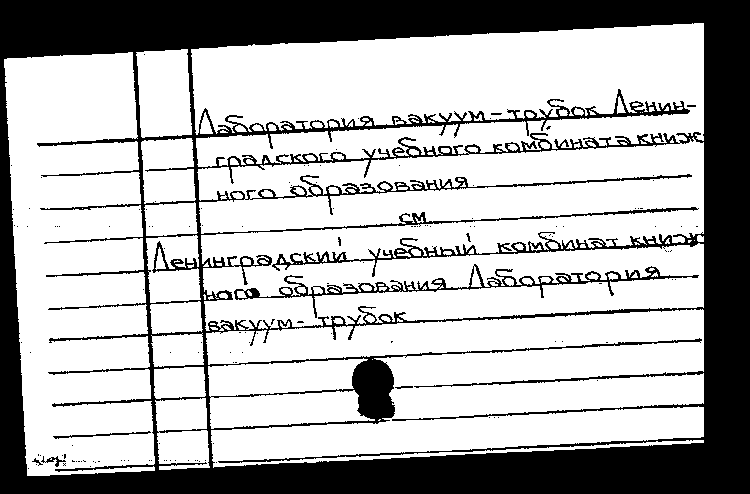 Лаборатория вакуум-трубок Ленин-
градского учебного комбината книж
ного образования
см.
Ленинградский учебный комбинат книж
ного образования Лаборатория
вакуум-трубок